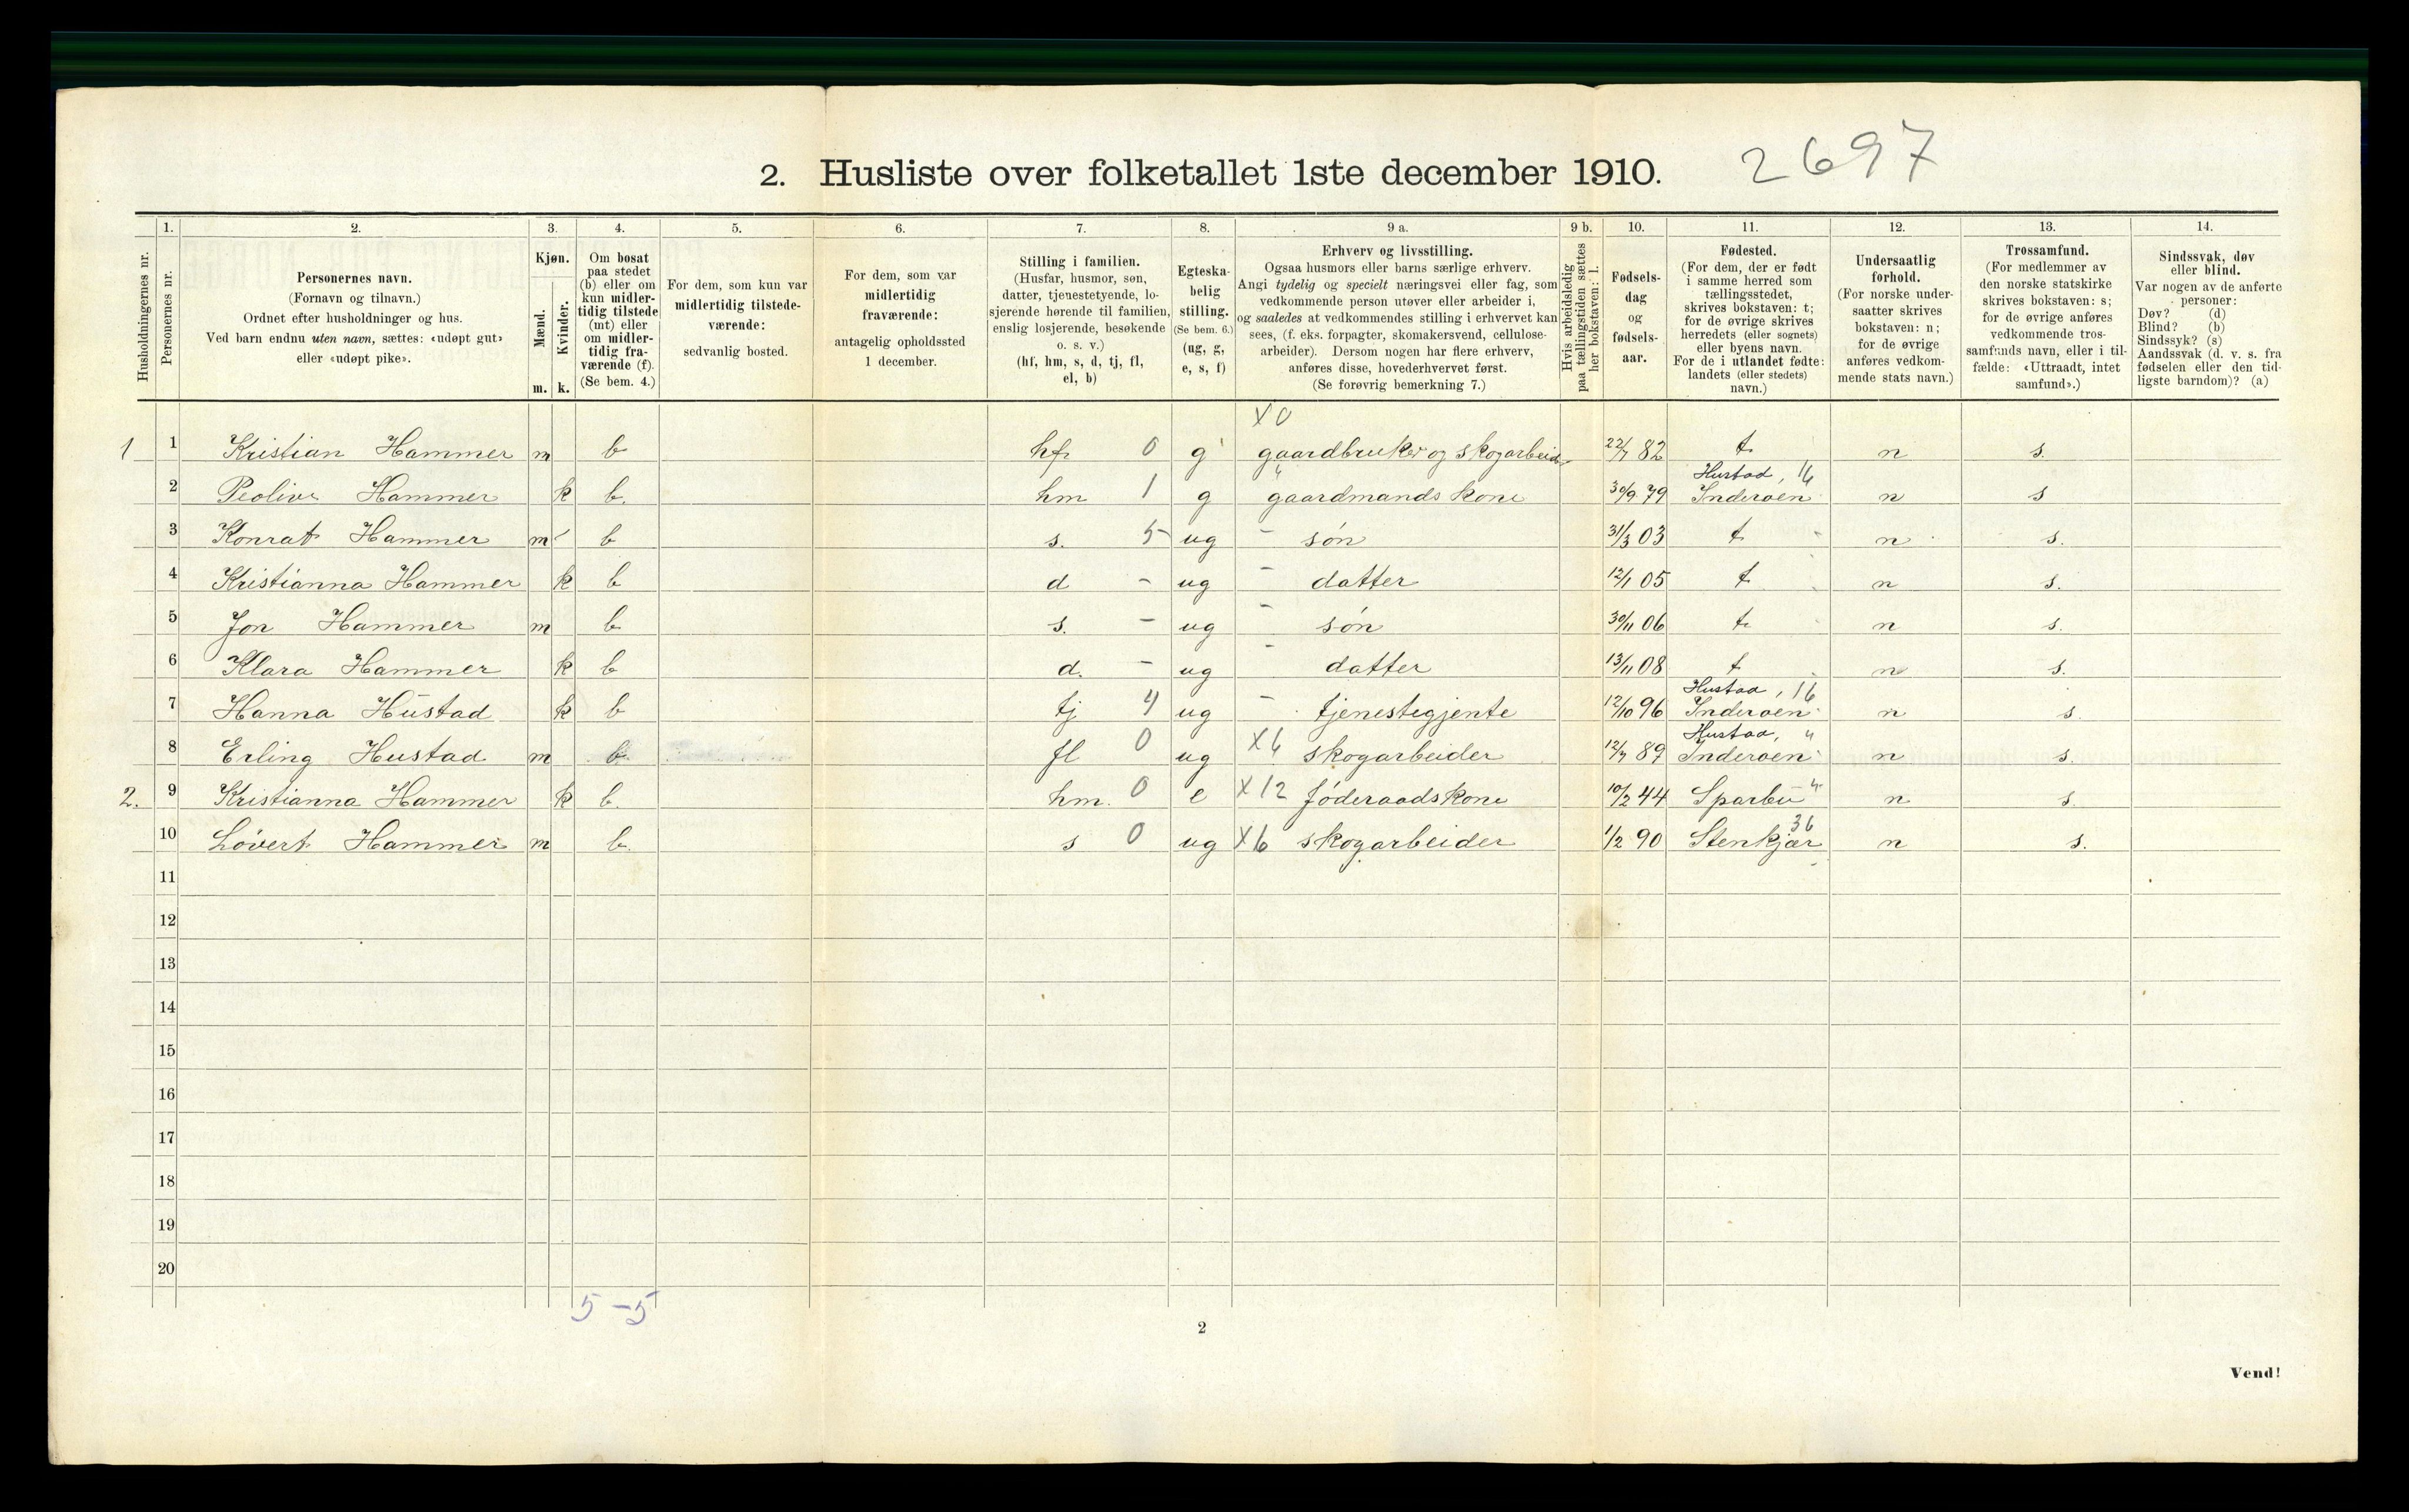 2. Husliste over folketallet 1ste december 1910. 2697
1. 2. 3. 4. 5. 6. 7. 8. 9 a. 9 b. 10. 11. 12. 13. 14.
Husholdningernes nr.
Personernes nr.
Personernes navn.
(Fornavn og tilnavn.)
Ordnet efter husholdninger og hus.
Ved barn endnu uten navn, sættes: «udøpt gut»
eller «udøpt pike».
Kjøn.
Mænd.
Kvinder.
m. k.
Om bosat
paa stedet
(b) eller om
kun midler-
tidig tilstede
(mt) eller
om midler-
tidig fra-
værende (f).
(Se bem. 4.)
For dem, som kun var
midlertidig tilstede-
værende:
sedvanlig bosted.
For dem, som var
midlertidig
fraværende:
antagelig opholdssted
1 december.
Stilling i familien.
(Husfar, husmor, søn,
datter, tjenestetyende, lo-
sjerende hørende til familien,
enslig losjerende, besøkende
o. s. v.)
(hf, hm, s, d, tj, fl,
el, b)
Egteska-
belig
stilling.
(Se bem. 6.)
(ug, g,
e, s, f)
Erhverv og livsstilling.
Ogsaa husmors eller barns særlige erhverv.
Angi tydelig og specielt næringsvei eller fag, som
vedkommende person utøver eller arbeider i,
og saaledes at vedkommendes stilling i erhvervet kan
sees, (f. eks. forpagter, skomakersvend, cellulose-
arbeider). Dersom nogen har flere erhverv,
anføres disse, hovederhvervet først.
(Se forøvrig bemerkning 7.)
Hvis arbeidsledig
paa tællingstiden sættes
her bokstaven: l.
Fødsels-
dag
og
fødsels-
aar.
Fødested.
(For dem, der er født
i samme herred som
tællingsstedet,
skrives bokstaven: t;
for de øvrige skrives
herredets (eller sognets)
eller byens navn.
For de i utlandet fødte:
landets (eller stedets)
navn.)
Undersaatlig
forhold.
(For norske under-
saatter skrives
bokstaven: n;
for de øvrige
anføres vedkom-
mende stats navn.)
Trossamfund.
(For medlemmer av
den norske statskirke
skrives bokstaven: s;
for de øvrige anføres
vedkommende tros-
samfunds navn, eller i til-
fælde: «Uttraadt, intet
samfund».)
Sindssvak, døv
eller blind.
Var nogen av de anførte
personer:
Døv? (d)
Blind? (b)
Sindssyk? (s)
Aandssvak (d. v. s. fra
fødselen eller den tid-
ligste barndom)? (a)
X 0
1 1 Kristian Hammer m b hf 0 g gaardbruker og skogarbeider 22/7 82 t n s.
Hustad, 16
2 Peolive Hammer k b. hm 1 g gaardmands kone 30/9 79 Inderøen n s
3 Konrat Hammer m b s. 5 ug - søn 31/3 03 t n s.
4 Kristianna Hammer k b d - ug - datter 12/1 05 t n s.
5 Jon Hammer m b s. - ug - søn 30/11 06 t n s.
6 Klara Hammer k b d. - ug - datter 13/11 08 t n s.
Hustad, 16
7 Hanna Hustad k b tj 4 ug - tjenestegjente 12/10 96 Inderøen n s
Hustad, "
8 Erling Hustad m b fl 0 ug X6 skogarbeider 12/7 89 Inderøen n s.
2. 9 Kristianna Hammer k b. hm. 0 e X12 føderaadskone 10/2 44 Sparbu " n s.
36
10 Løvert Hammer m b. s 0 ug X6 skogarbeider 1/2 90 Stenkjær n s.
11
12
13
14
15
16
17
18
19
20
5 - 5
2
Vend!